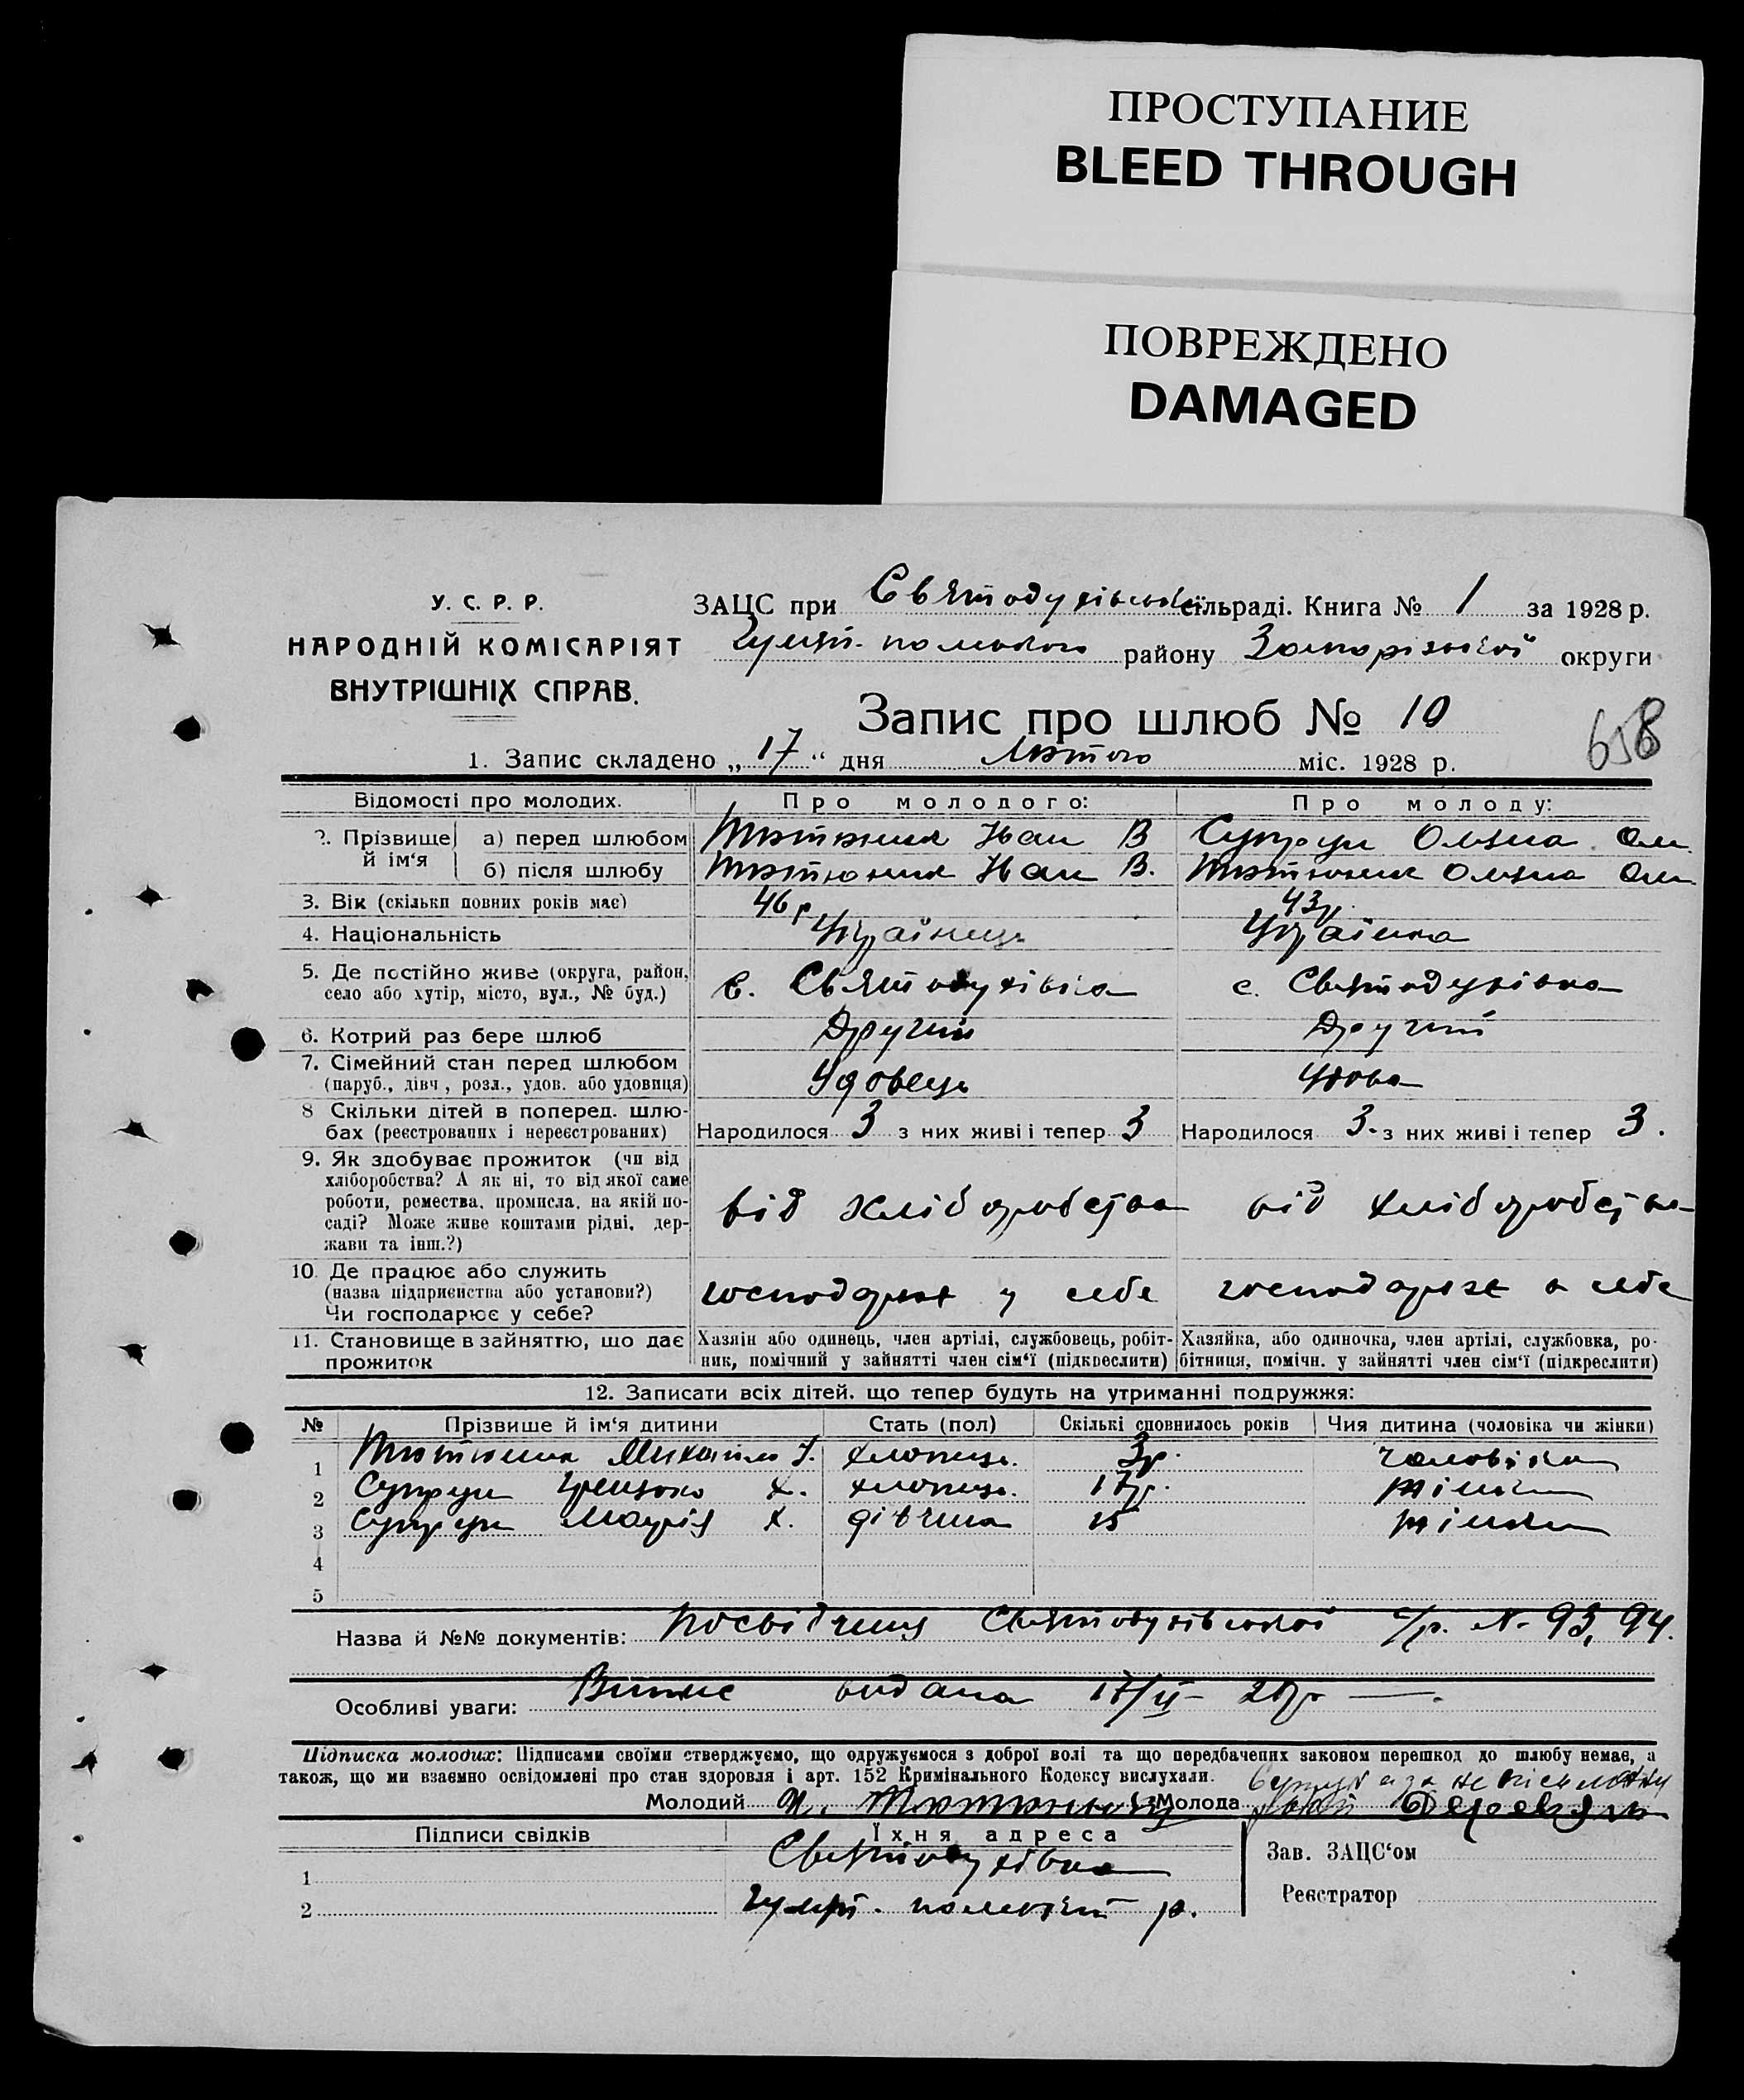 ПРОСТУПАНИЕ
BLEED THROUGH
ПОВРЕЖДЕНО
DAMAGED
У. С. Р. Р.
НАРОДНІЙ КОМІСАРІЯТ
ВНУТРІШНІХ СПРАВ.
ЗАЦС при Святодухівській сільраді. Книга № 1 за 1928 р.
Гуляй-польського району Запорізької округи
Запис про шлюб № 10
658
1. Запис складено „17“ дня Лютого міс. 1928 р.
Відомості про молодих. Про молодого: Про молоду:
2. Прізвище й ім‘я а) перед шлюбом Тютюник Іван В Супрун Оляна Ом.
б) після шлюбу Тютюник Іван В. Тютюник Оляна Ом.
3. Вік (скільки повних років має) 46 р 43 р.
4. Національність Українець Українка
5. Де постійно живе (округа, район, село або хутір, місто, вул., № буд.) с. Святодухівка с. Святодухівка
6. Котрий раз бере шлюб Другий Другий
7. Сімейний стан перед шлюбом (паруб., дівч., розл., удов. або удовиця) Удовець Удова
8 Скільки дітей в поперед. шлюбах (реєстрованих і нереєстрованих) Народилося 3 з них живі і тепер 3 Народилося 3. з них живі і тепер 3.
9. Як здобуває прожиток (чи від
хліборобства? А як ні, то від якої саме
роботи, ремества, промисла, на якій по-
саді? Може живе коштами рідні, дер-
жави та інш.?) від хліборобства від хліборобства
10. Де працює або служить
(назва підприєнства або установи?)
Чи господарює у себе? господарює у себе господарює в себе
11. Становище в зайняттю, що дає прожиток
Хазяін або одинець, член артілі, службовець, робіт-
ник, помічний у зайнятті член сім‘ї (підкреслити)
Хазяйка, або одиночка, член артілі, службовка, ро-
бітниця, помічн. у зайнятті член сім‘ї (підкреслити)
12. Записати всіх дітей, що тепер будуть на утриманні подружжя:
№ Прізвище й ім‘я дитини Стать (пол) Скількі сповнилось років Чия дитина (чоловіка чи жінки)
1 Тютюник Михайло І. хлопець. 3 р. чоловіка
2 Супрун Грицько Х. хлопець. 17 р. жінки
3 Супрун Марія Х. дівчина 15 жінки
4
5
Назва й №№ документів: Посвідчення Святодухівської с/р. № 93, 94.
Особливі уваги: видана 17/II- 28 р —.
Підписка молодих: Підписами своїми стверджуємо, що одружуємося з доброї волі та що передбачених законом перешкод до шлюбу немає, а
також, що ми взаємно освідомлені про стан здоровля і арт. 152 Кримінального Кодексу вислухали.
Молодий И. Тютюник Молода
Підписи свідків Їхня адреса
1 Святодухівка
2 Гуляй-польський р.
Зав. ЗАЦС‘ом
Реєстратор